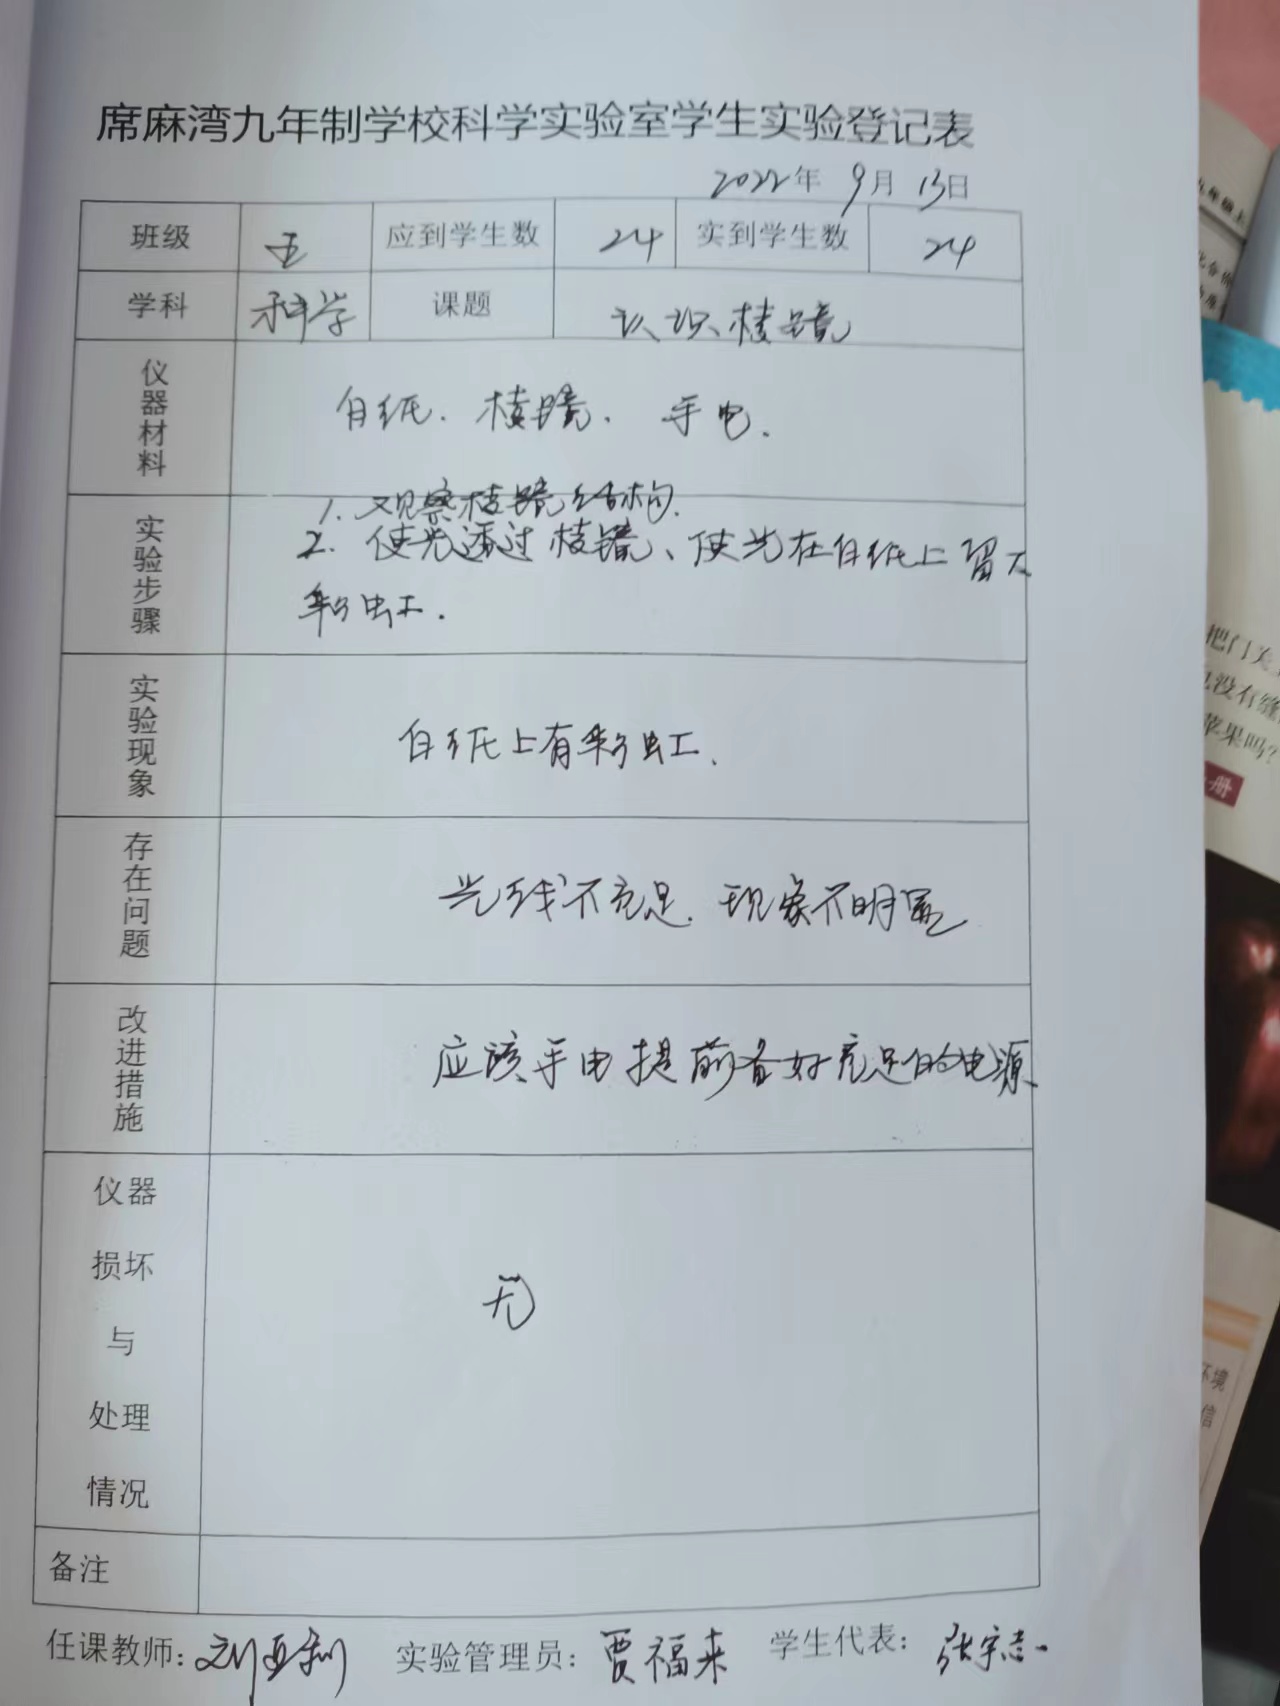 席麻湾九年制学校科学实验室学生实验登记表
2022年 9月 13日
班级 五 应到学生数 24 实到学生数 24
学科 科学 课题 认识棱镜
仪器材料 白纸. 棱镜. 手电.
实验步骤 1. 观察棱镜结构.
2. 使光透过棱镜、使光在白纸上留下
彩虹.
实验现象 白纸上有彩虹.
存在问题 光线不充足. 现象不明显
改进措施 应该手电提前备好充足的电源
仪器
损坏
与
处理
情况
无
备注
任课教师: 实验管理员: 贾福来 学生代表: 张宇志
把门关
也没有缝
苹果吗?
册
环境
信